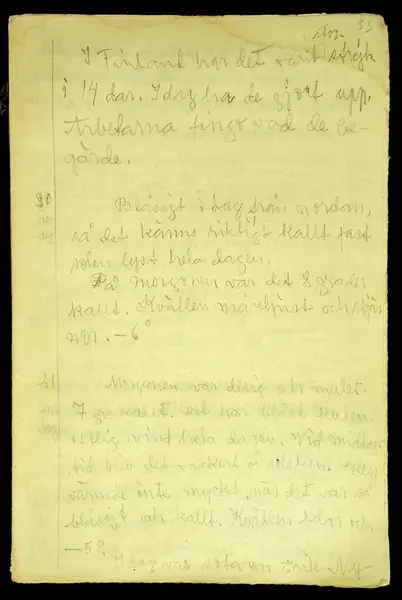 33
stor-
I Finland har det varit strejk
i 14 dar. Idag ha de gjort upp.
Arbetarna fingo vad de be-
gärde.
30
Blåsigt i dag från nordan,
så det känns riktigt kallt fast
solen lyst hela dagen.
På morgonen var det 8 grader
kallt. Kvällen månljust och stjär
-6°
31
Morgonen var disig och mulet.
7 gr kallt. Det har blåst kulen
ostlig vind hela dagen. Vid middags
tid blev det vackert o solsken. Men
värmde inte mycket, när det var så
blåsigt och kallt. Kvällen klar och
-5°.
I dag var sotaren